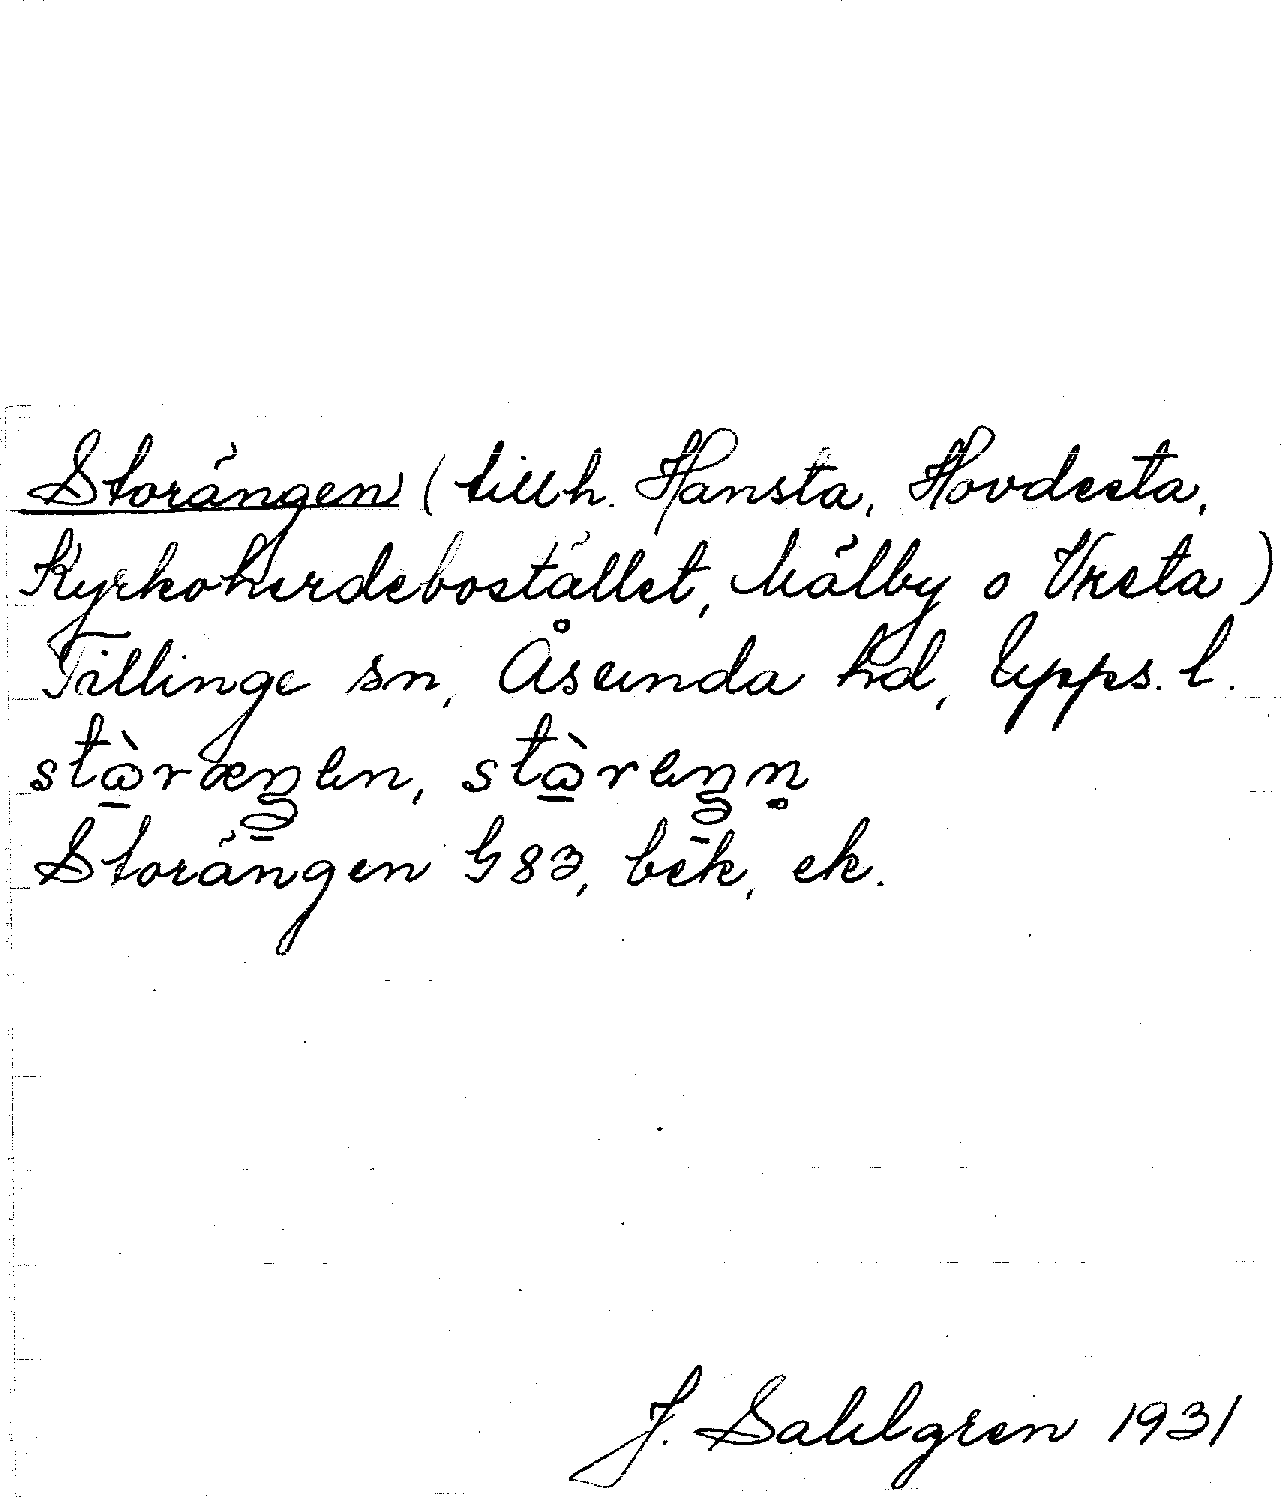 Storängen (tillh. Hansta, Hovdesta,
Kyrkoherdebostället, Mälby o Vreta)
Tillinge sn, Åsunda hd, Upps. l.
stɷ̠̀ræŋen, stɷ̠̀reŋn̥
Storängen G 83, bek, ek.
J. Sahlgren 1931